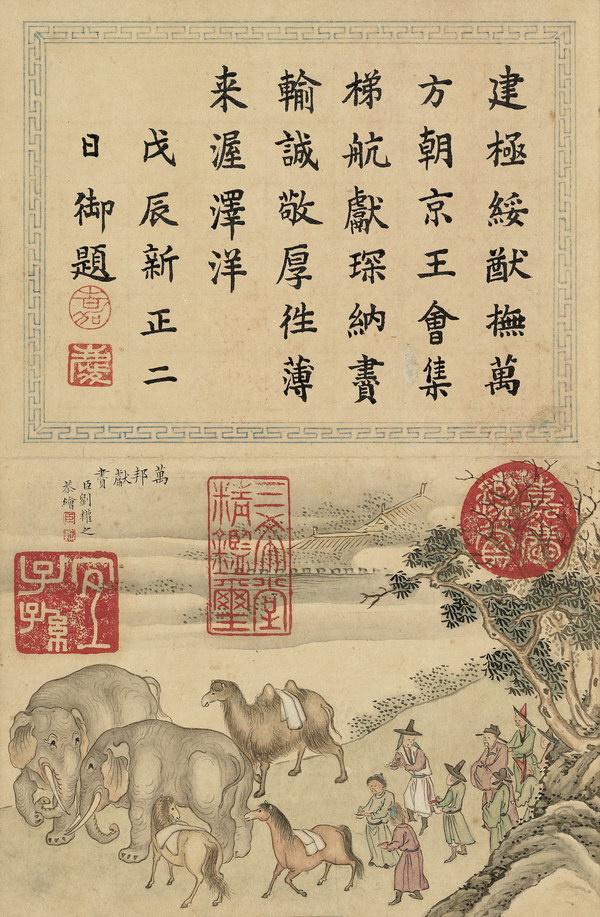 建極綏猷撫萬
方朝京王會集
梯航獻琛納賮
輸誠敬厚徃薄
来渥澤洋
戊辰新正二
日御題
嘉
慶
嘉慶鑑賞
三希堂精鑑璽
萬邦獻賮
臣劉權之
恭繪
宜子孫